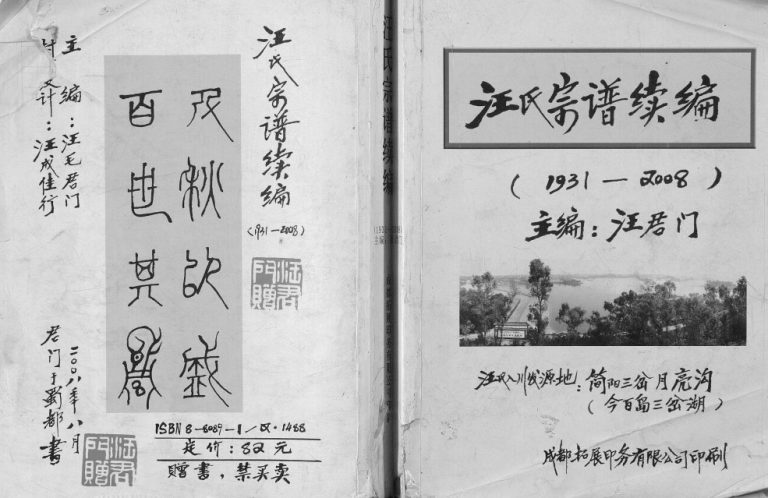 汪氏宗谱续编
(1931—2008)
主编：汪君门
汪氏入川发源地：简阳三岔月亮沟
（今百岛三岔湖）
成都拓展印务有限公司印刷
汪氏宗谱续编
汪氏宗谱续编
(1931—2008)
汪君
门赠
百世其昌
主编：汪君门
设计：汪成佳行
二〇〇八年八月
君门于蜀都书
汪君
门赠
ISBN 8-8089-1/Z·1488
定价：82元
赠书，禁买卖